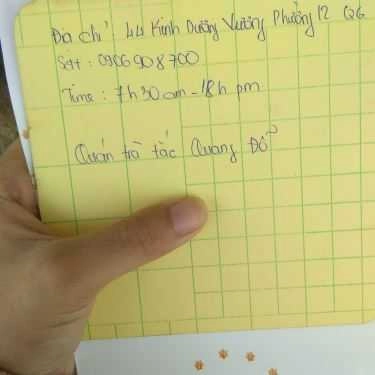 Địa chỉ : 44 Kinh Dương Vương Phường 12 Q6
Sđt : 0906908700
Time : 7h30am - 18h pm
Quán trà tắc Quang Đỗ